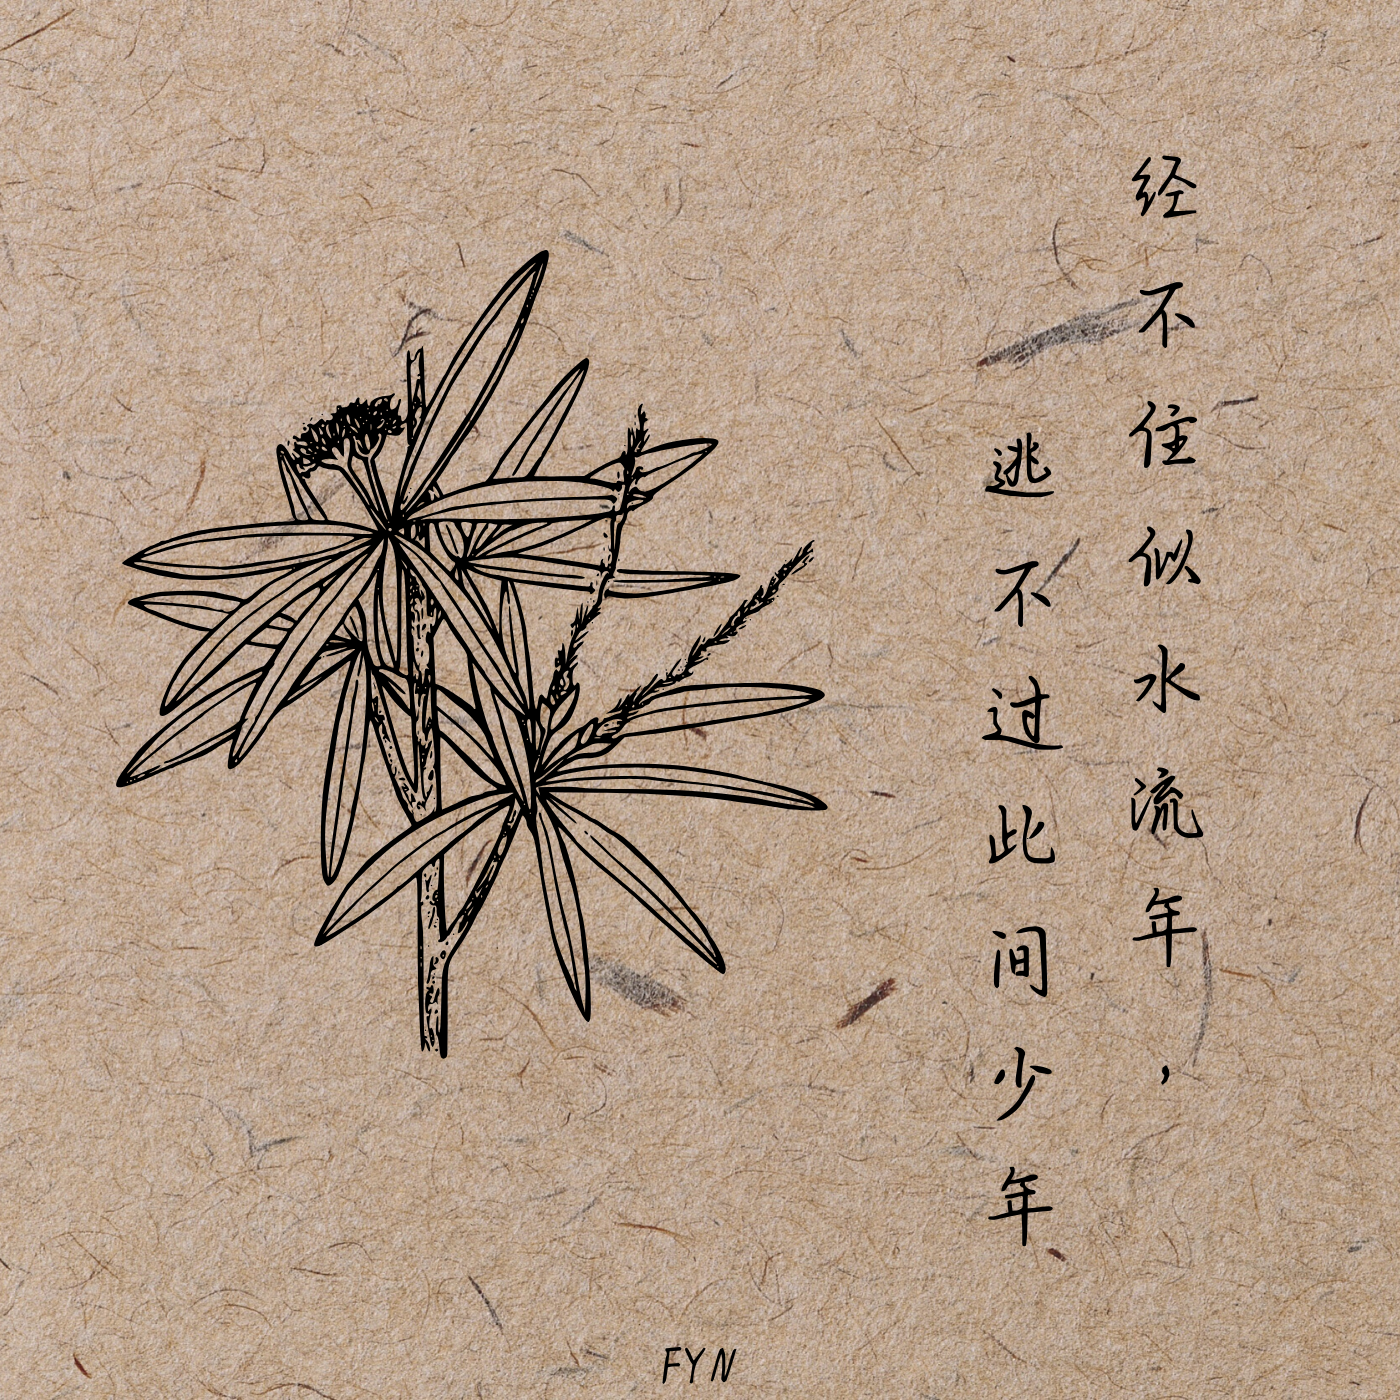 经不住似水流年，
逃不过此间少年
FYN